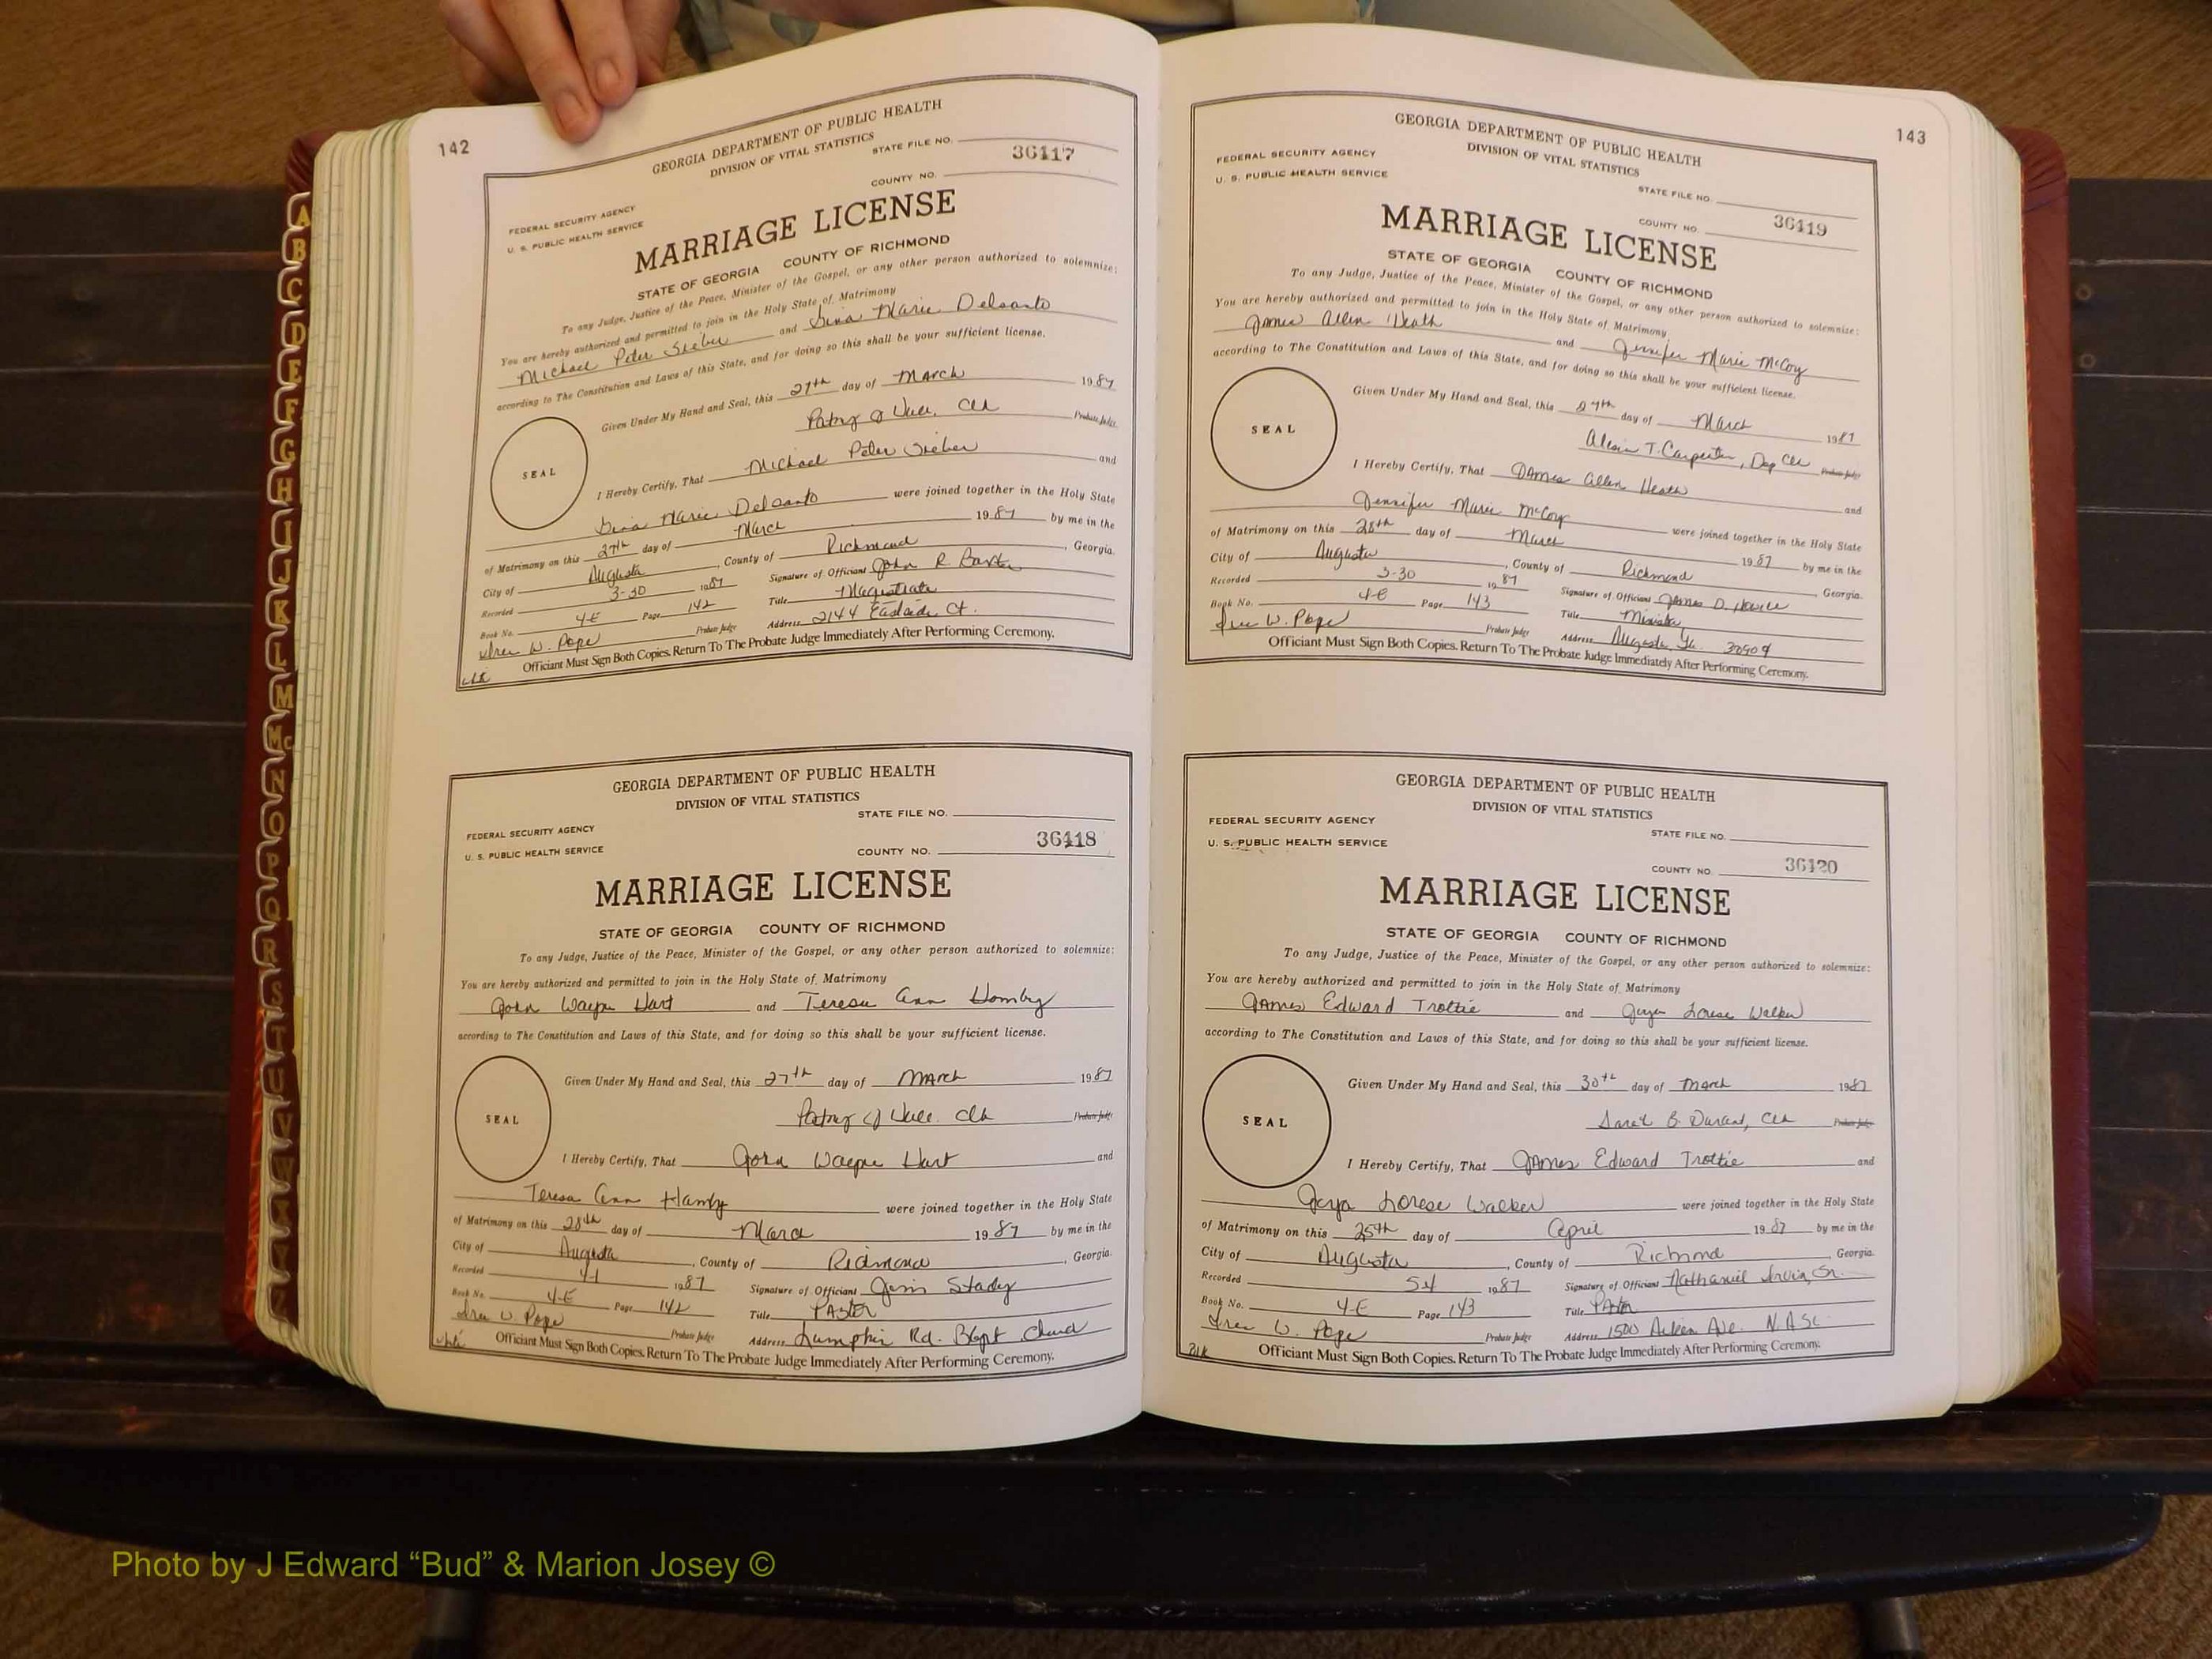 142
GEORGIA DEPARTMENT OF PUBLIC HEALTH
DIVISION OF VITAL STATISTICS
STATE FILE NO.
36117
COUNTY NO.
FEDERAL SECURITY AGENCY
U. S. PUBLIC HEALTH SERVICE
MARRIAGE LICENSE
STATE OF GEORGIA COUNTY OF RICHMOND
To any Judge, Justice of the Peace, Minister of the Gospel, or any other person authorized to solemnize:
You are hereby authorized and permitted to join in the Holy State of Matrimony
Michael Peter Sieber and Gina Marie Delsanto
according to The Constitution and Laws of this State, and for doing so this shall be your sufficient license.
Given Under My Hand and Seal, this 27th day of March 1987
Clk Probate Judge
SEAL
I Hereby Certify, That Michael Peter Sieber and
Gina Marie Delsanto were joined together in the Holy State
of Matrimony on this 27th day of March 1987 by me in the
City of Augusta, County of Richmond, Georgia
Recorded 3-30 1987 Signature of Officiant John R Baxter
Book No. 4-E Page 142 Title Magistrate
W. Pope Probate Judge Address 2144 Eastside Ct.
Officiant Must Sign Both Copies. Return To The Probate Judge Immediately After Performing Ceremony.
GEORGIA DEPARTMENT OF PUBLIC HEALTH
DIVISION OF VITAL STATISTICS
STATE FILE NO.
FEDERAL SECURITY AGENCY
36118
U. S. PUBLIC HEALTH SERVICE
COUNTY NO.
MARRIAGE LICENSE
STATE OF GEORGIA COUNTY OF RICHMOND
To any Judge, Justice of the Peace, Minister of the Gospel, or any other person authorized to solemnize:
You are hereby authorized and permitted to join in the Holy State of Matrimony
John Wayne Hart and Teresa Ann Hamby
according to The Constitution and Laws of this State, and for doing so this shall be your sufficient license.
Given Under My Hand and Seal, this 27th day of March 1987
Clk Probate Judge
SEAL
I Hereby Certify, That John Wayne Hart and
Teresa Ann Hamby were joined together in the Holy State
of Matrimony on this 28th day of March 1987 by me in the
City of Augusta, County of Richmond, Georgia
Recorded 4-1 1987 Signature of Officiant
Book No. 4-E Page 142 Title Pastor
W. Pope Probate Judge Address Lumpkin Rd. Bapt Church
Officiant Must Sign Both Copies. Return To The Probate Judge Immediately After Performing Ceremony.
143
GEORGIA DEPARTMENT OF PUBLIC HEALTH
DIVISION OF VITAL STATISTICS
FEDERAL SECURITY AGENCY
U. S. PUBLIC HEALTH SERVICE
STATE FILE NO.
COUNTY NO. 36119
MARRIAGE LICENSE
STATE OF GEORGIA COUNTY OF RICHMOND
To any Judge, Justice of the Peace, Minister of the Gospel, or any other person authorized to solemnize:
You are hereby authorized and permitted to join in the Holy State of Matrimony
James Allen Heath and Jennifer Marie McCoy
according to The Constitution and Laws of this State, and for doing so this shall be your sufficient license.
Given Under My Hand and Seal, this 27th day of March 1987
T. Carpenter, Dep Clk Probate Judge
SEAL
I Hereby Certify, That James Allen Heath and
Jennifer Marie McCoy were joined together in the Holy State
of Matrimony on this 28th day of March 1987 by me in the
City of Augusta, County of Richmond, Georgia
Recorded 3-30 1987 Signature of Officiant James D.
Book No. 4-E Page 143 Title Minister
W. Pope Probate Judge Address Augusta, Ga. 30904
Officiant Must Sign Both Copies. Return To The Probate Judge Immediately After Performing Ceremony.
GEORGIA DEPARTMENT OF PUBLIC HEALTH
DIVISION OF VITAL STATISTICS
FEDERAL SECURITY AGENCY
STATE FILE NO.
U. S. PUBLIC HEALTH SERVICE
COUNTY NO. 36120
MARRIAGE LICENSE
STATE OF GEORGIA COUNTY OF RICHMOND
To any Judge, Justice of the Peace, Minister of the Gospel, or any other person authorized to solemnize:
You are hereby authorized and permitted to join in the Holy State of Matrimony
James Edward Trottie and Lorese Walker
according to The Constitution and Laws of this State, and for doing so this shall be your sufficient license.
Given Under My Hand and Seal, this 30th day of March 1987
B. Durant, Clk Probate Judge
SEAL
I Hereby Certify, That James Edward Trottie and
Lorese Walker were joined together in the Holy State
of Matrimony on this 25th day of April 1987 by me in the
City of Augusta, County of Richmond, Georgia
Recorded 5-4 1987 Signature of Officiant Nathaniel Irvin, Sr.
Book No. 4-E Page 143 Title Pastor
W. Pope Probate Judge Address 1500 Aiken Ave. N.A SC
Officiant Must Sign Both Copies. Return To The Probate Judge Immediately After Performing Ceremony.
A
B
C
D
E
F
G
H
I
J
K
L
M
Mc
N
O
P
Q
R
S
T
U
V
W
Photo by J Edward “Bud” & Marion Josey ©